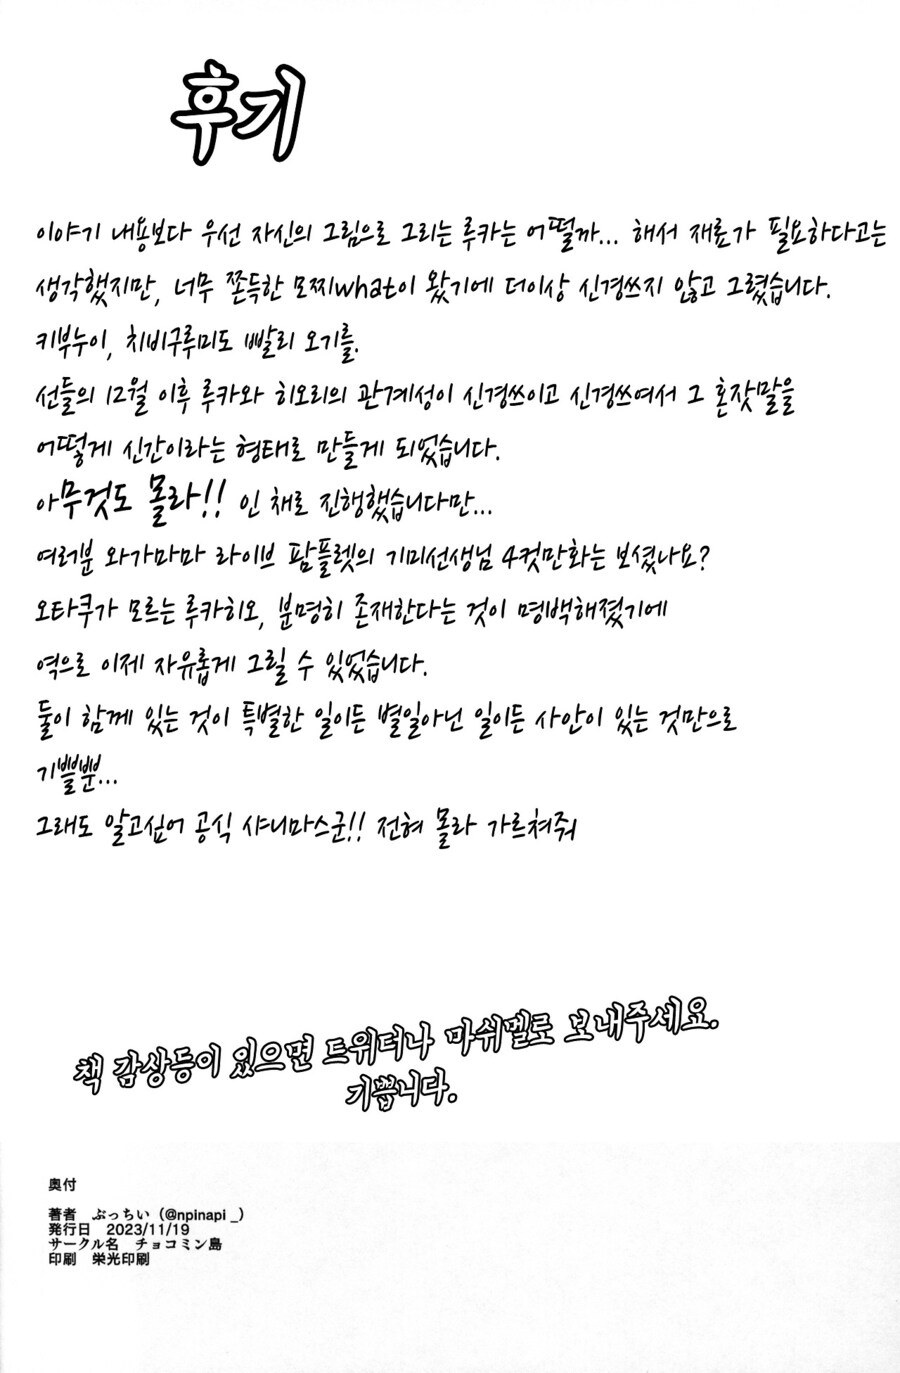 후기
이야기 내용보다 우선 자신의 그림으로 그리는 루카는 어떨까... 해서 재료가 필요하다고는
생각했지만, 너무 쫀득한 모찌what이 왔기에 더이상 신경쓰지 않고 그렸습니다.
키부누이, 치비구루미도 빨리 오기를.
선들의 12월 이후 루카와 히오리의 관계성이 신경쓰이고 신경쓰여서 그 혼잣말을
어떻게 신간이라는 형태로 만들게 되었습니다.
아무것도 몰라!! 인 채로 진행했습니다만...
여러분 와가마마 라이브 팜플렛의 기미선생님 4컷만화는 보셨나요?
오타쿠가 모르는 루카히오, 분명히 존재한다는 것이 명백해졌기에
역으로 이제 자유롭게 그릴 수 있었습니다.
둘이 함께 있는 것이 특별한 일이든 별일아닌 일이든 사안이 있는 것만으로
기쁠뿐...
그래도 알고싶어 공식 샤니마스군!! 전혀 몰라 가르쳐줘
책 감상등이 있으면 트위터나 마쉬멜로 보내주세요.
기쁩니다.
奥付
著者 ぶっちぃ（@npinapi _）
発行日 2023/11/19
サークル名 チョコミン島
印刷 栄光印刷